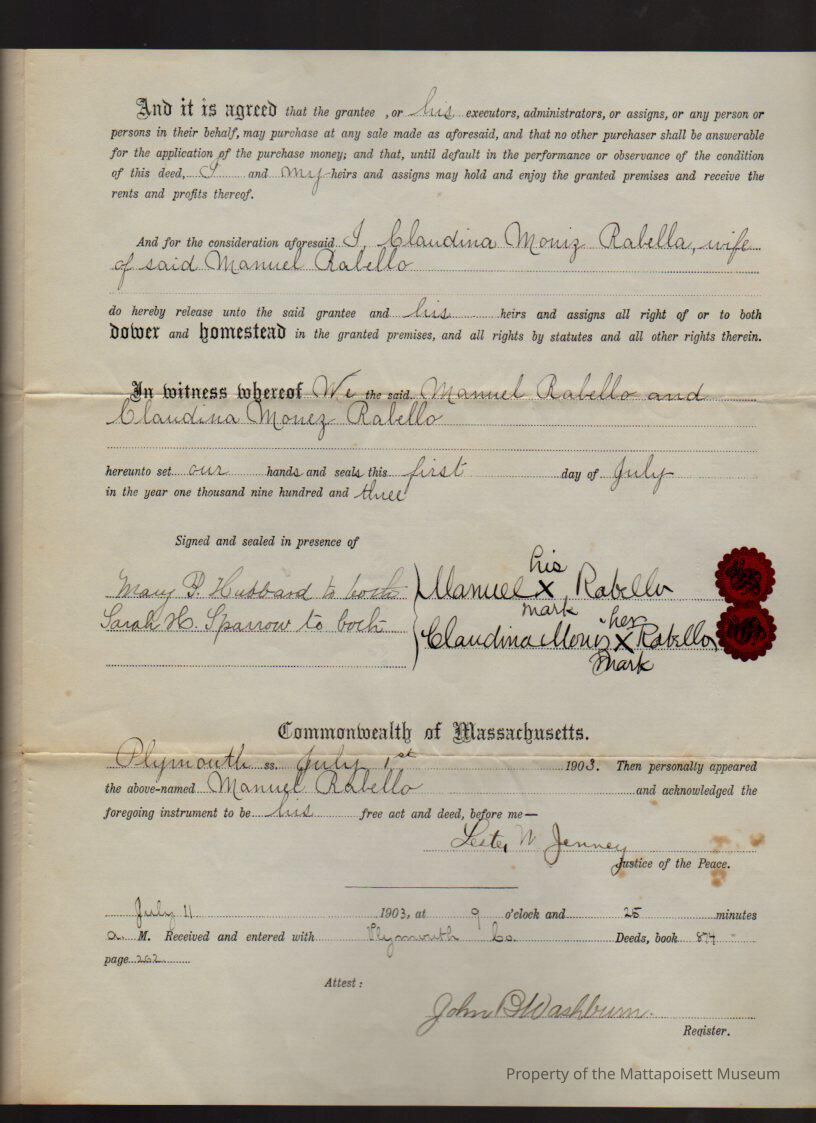 And it is agreed that the grantee , or his executors, administrators, or assigns, or any person or
persons in their behalf, may purchase at any sale made as aforesaid, and that no other purchaser shall be answerable
for the application of the purchase money; and that, until default in the performance or observance of the condition
of this deed, I and my heirs and assigns may hold and enjoy the granted premises and receive the
rents and profits thereof.
And for the consideration aforesaid I, Claudina Moniz Rabella, wife
of said Manuel Rabello
do hereby release unto the said grantee and his heirs and assigns all right of or to both
dower and homestead in the granted premises, and all rights by statutes and all other rights therein.
In witness whereof We the said Manuel Rabello and
Claudina Monez Rabello
hereunto set our hands and seals this first day of July
in the year one thousand nine hundred and three
Signed and sealed in presence of
his
Mary F. Hubbard to both Manuel X Rabello
mark her
Sarah H. Sparrow to both Claudina Moniz X Rabello
mark
Commonwealth of Massachusetts.
Plymouth ss. July 1st 1903. Then personally appeared
the above-named Manuel Rabello and acknowledged the
foregoing instrument to be his free act and deed, before me—
Lester W Jenney
Justice of the Peace.
July 11 1903, at 9 o'clock and 25 minutes
a. M. Received and entered with Plymouth Co. Deeds, book 874
page 262
Attest:
John B Washburn.
Register.
Property of the Mattapoisett Museum